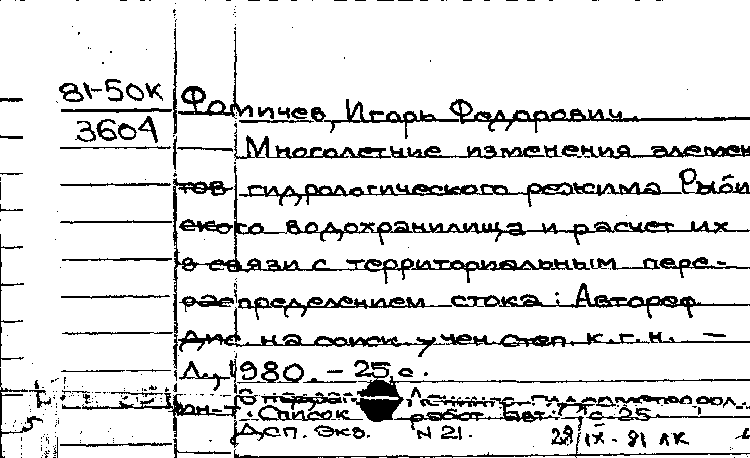 81-50к
3604
Фомичев, Игорь Федорович.
Многолетние изменения элемен
тов гидрологического режима Рыбин
ского водохранилища и расчет их
в связи с территориальным пере-
распределением стока: Автореф
дис. на соиск. учен степ. к.г.н. –
Л., 1980. – 25 с.
В надзаг. Ленингр. гидрометеорол.
ин-т. Список работ авт.: с. 25.
Дсп. Экз. N 21.
28/IX-81 ЛК